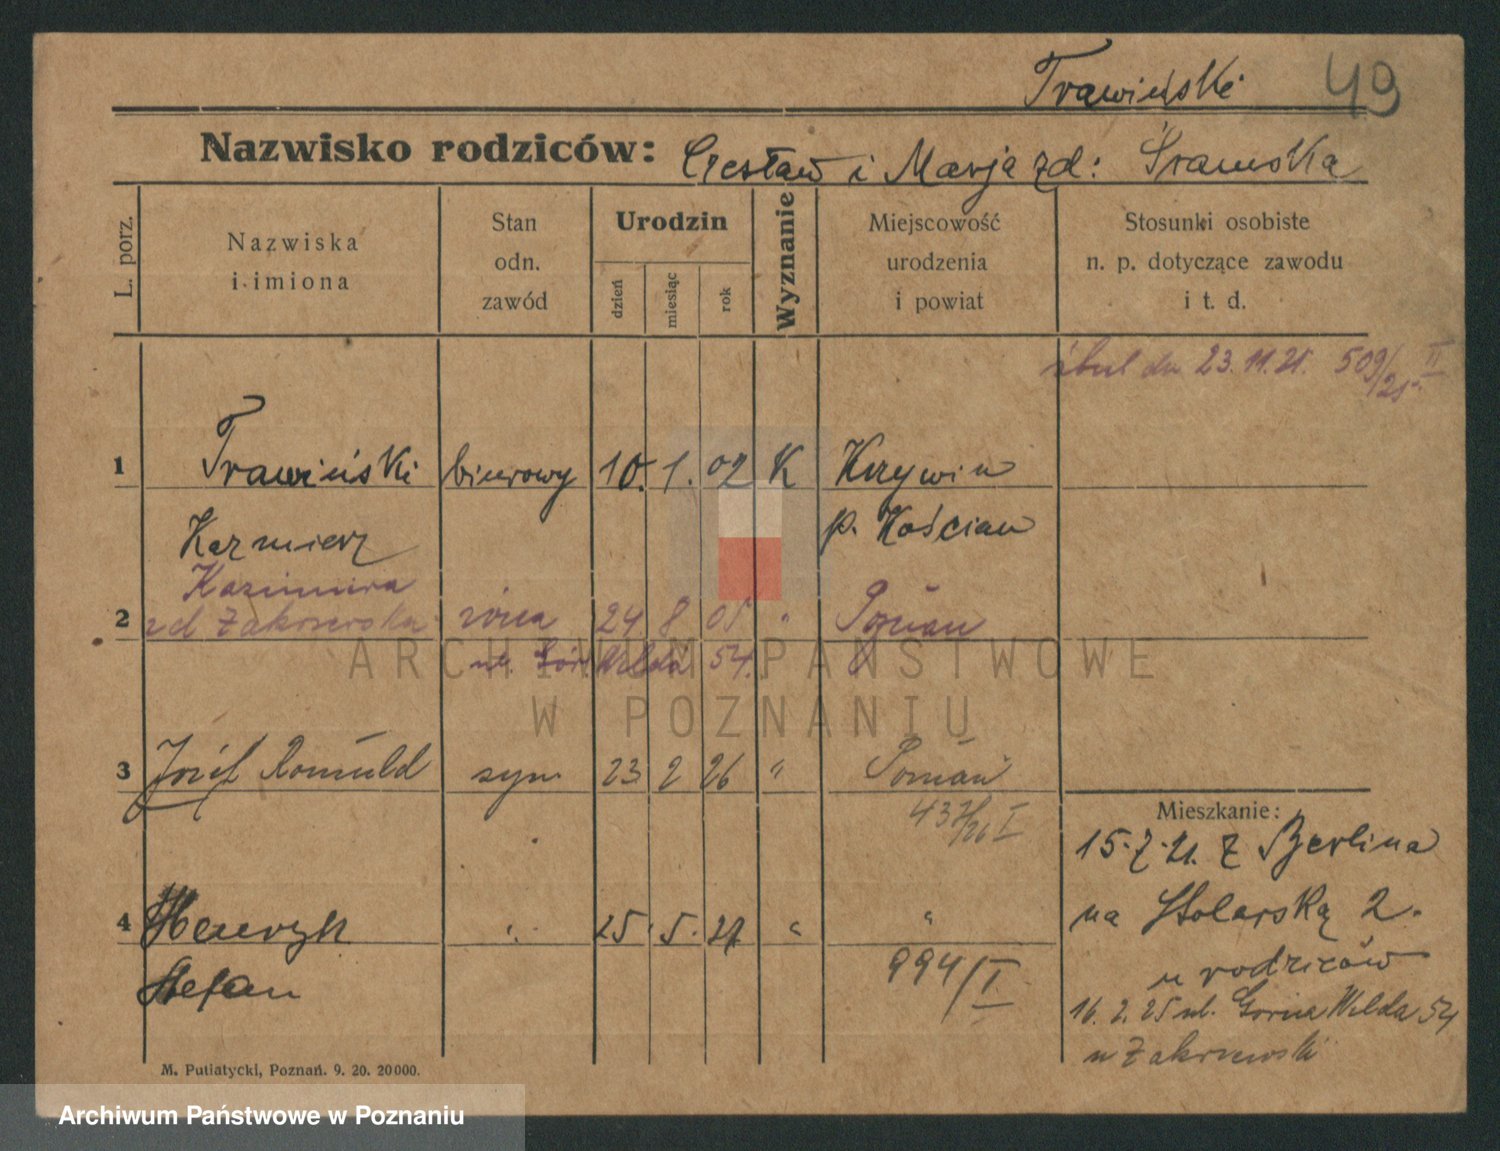 Trawiński 49
Nazwisko rodziców: Czesław i Marja zd: Sramska
L. porz.
Nazwiska i imiona
Stan odn. zawód
Urodzin
dzień miesiąc rok
Wyznanie
Miejscowość urodzenia i powiat
Stosunki osobiste n. p. dotyczące zawodu i t. d.
ślub dn 23. 11. 509/25 II
1 Trawiński biurowy 10. 1. 02 K Krzywin
Kazmierz p. Kościan
Kazimiera
2 zd Zakrzewska żona 24 8 05 " Poznań
ul. Gór. Wilda 54.
3 Józef Romuld syn 23 2 26 " Poznań
437/26 I
4 Henryk " 25. 5. 27 " "
Stefan 994/I
Mieszkanie:
15.7.21. z Berlina
na Stolarską 2.
u rodziców
16. 2. 25 ul. Gorna Wilda 54
u Zakrzewski
M. Putiatycki, Poznań. 9. 20. 20000.
ARCHIWUM PAŃSTWOWE
W POZNANIU
Archiwum Państwowe w Poznaniu